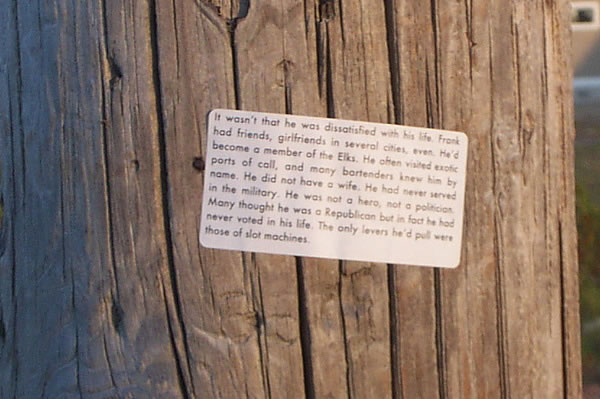 It wasn't that he was dissatisfied with his life. Frank
had friends, girlfriends in several cities, even. He'd
become a member of the Elks. He often visited exotic
ports of call, and many bartenders knew him by
name. He did not have a wife. He had never served
in the military. He was not a hero, not a politician.
Many thought he was a Republican but in fact he had
never voted in his life. The only levers he'd pull were
those of slot machines.